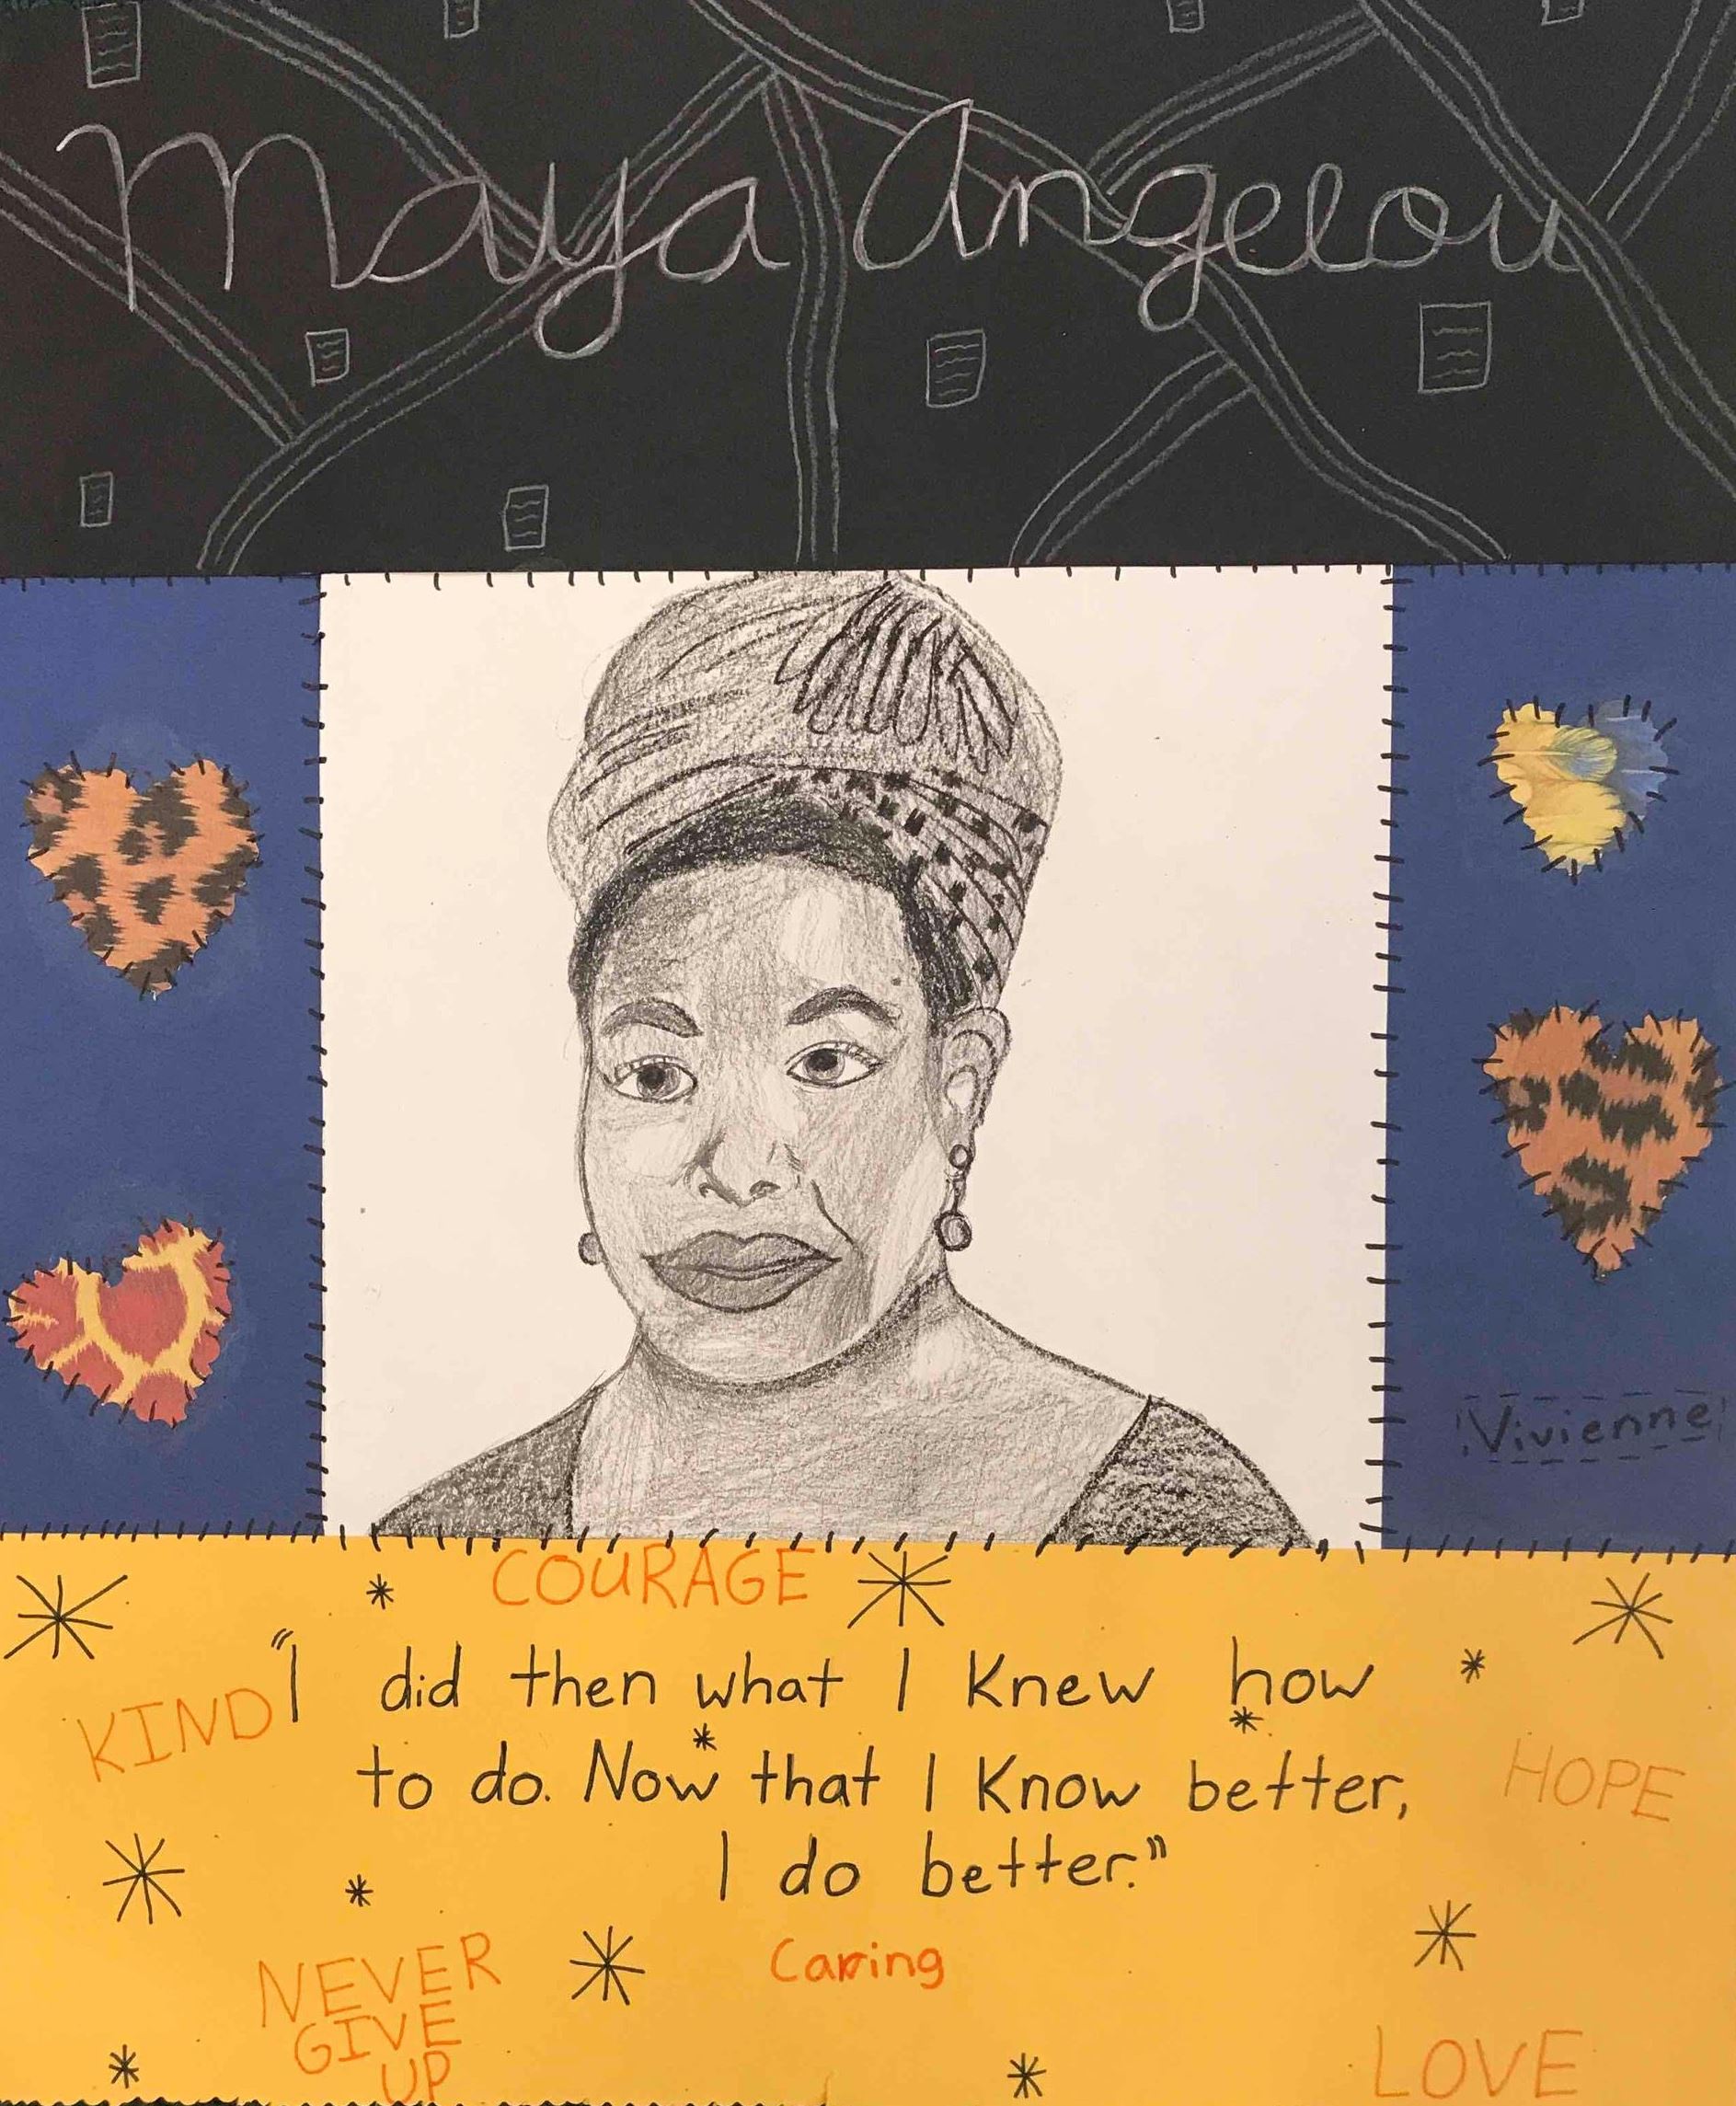 Maya Angelou
Vivienne
COURAGE
KIND
"I did then what I Knew how
to do. Now that I Know better,
I do better."
HOPE
NEVER
GIVE
UP
Caring
LOVE